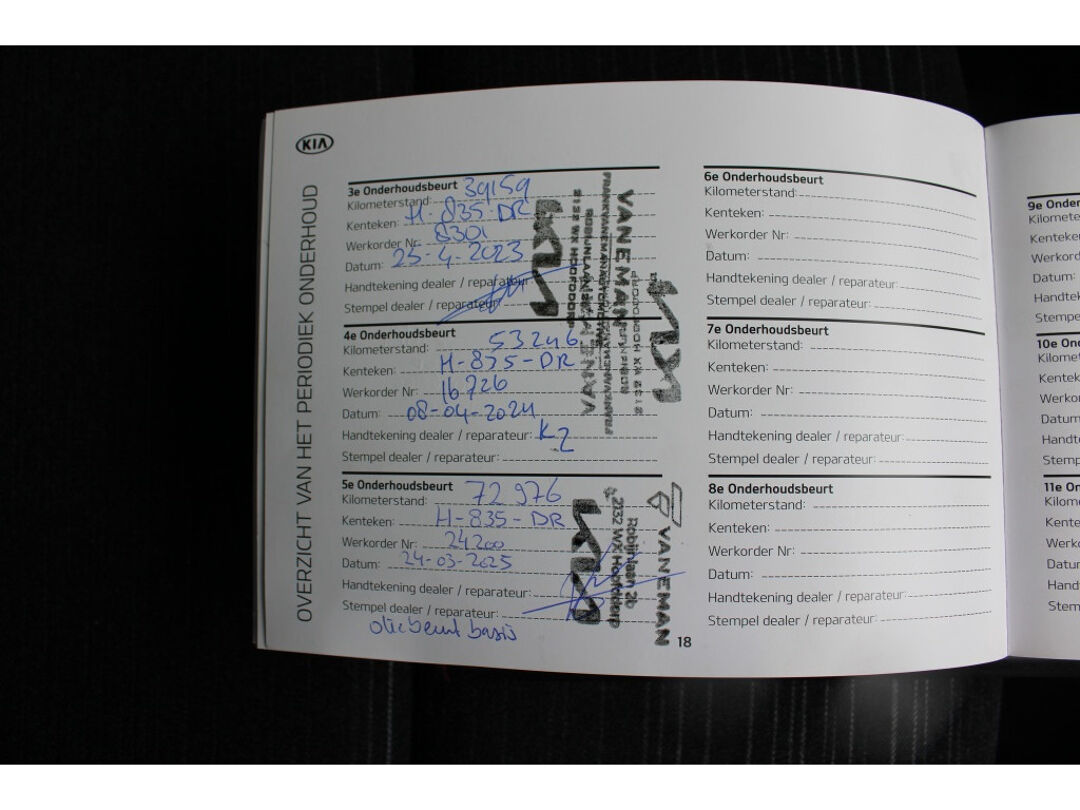 KIA
OVERZICHT VAN HET PERIODIEK ONDERHOUD
3e Onderhoudsbeurt
Kilometerstand: 39159
Kenteken: H-835-DR
Werkorder Nr: 8301
Datum: 25-4-2023
Handtekening dealer / reparateur:
Stempel dealer / reparateur:
VANEMAN
2132 WX HOOFDDORP
KIA
4e Onderhoudsbeurt
Kilometerstand: 53246
Kenteken: H-835-DR
Werkorder Nr: 16726
Datum: 08-04-2024
Handtekening dealer / reparateur:
Stempel dealer / reparateur:
KIA
5e Onderhoudsbeurt
Kilometerstand: 72976
Kenteken: H-835-DR
Werkorder Nr: 24200
Datum: 24-03-2025
Handtekening dealer / reparateur:
Stempel dealer / reparateur:
oliebeurt basis
VANEMAN
Robijnlaan 2b
2132 WX Hoofddorp
KIA
18
6e Onderhoudsbeurt
Kilometerstand:
Kenteken:
Werkorder Nr:
Datum:
Handtekening dealer / reparateur:
Stempel dealer / reparateur:
7e Onderhoudsbeurt
Kilometerstand:
Kenteken:
Werkorder Nr:
Datum:
Handtekening dealer / reparateur:
Stempel dealer / reparateur:
8e Onderhoudsbeurt
Kilometerstand:
Kenteken:
Werkorder Nr:
Datum:
Handtekening dealer / reparateur:
Stempel dealer / reparateur:
9e Onder
Kilomete
Kenteken
Werkord
Datum:
Handtek
Stempe
10e On
Kilomet
Kentek
Werko
Datum
Handt
Stemp
11e On
Kilom
Kente
Werk
Datu
Hand
Stem